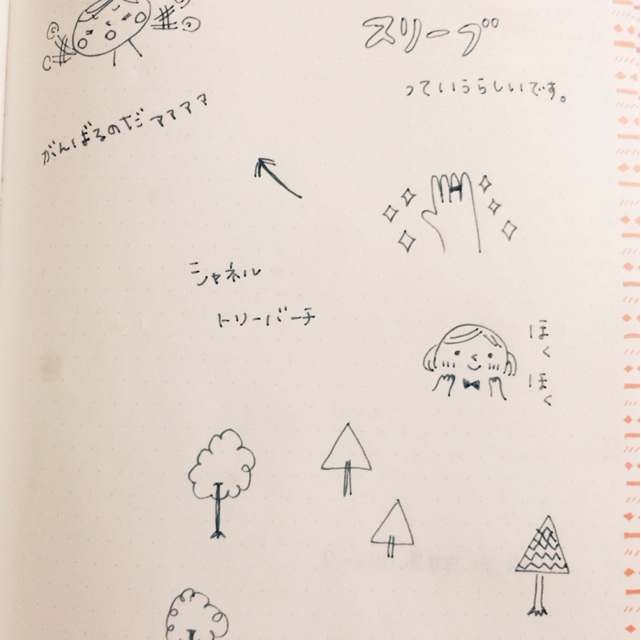 スリーブ
っていうらしいです。
がんばるのだママママ
シャネル
トリーバーチ
ほく
ほく